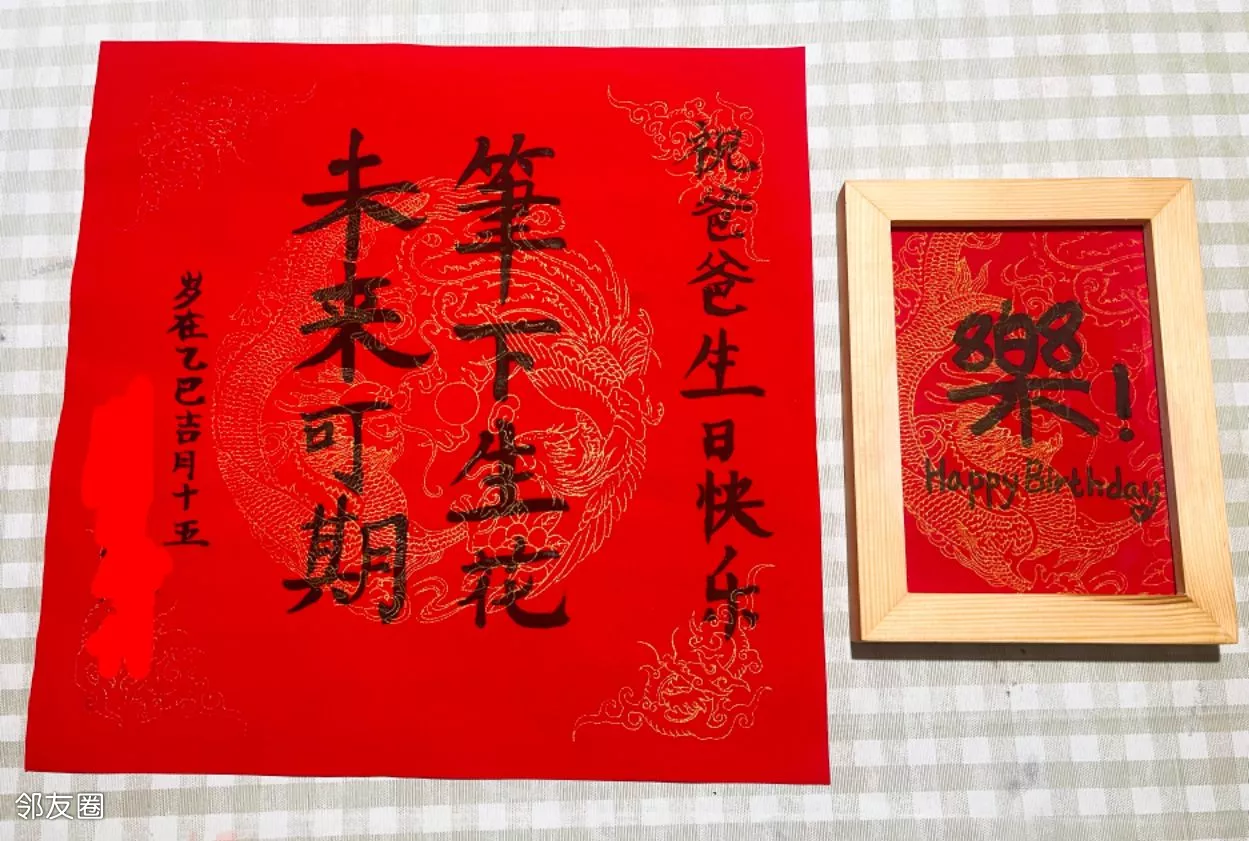 祝爸爸生日快乐
筆下生花
未来可期
岁在乙巳吉月十五
樂!
Happy Birthday
邻友圈